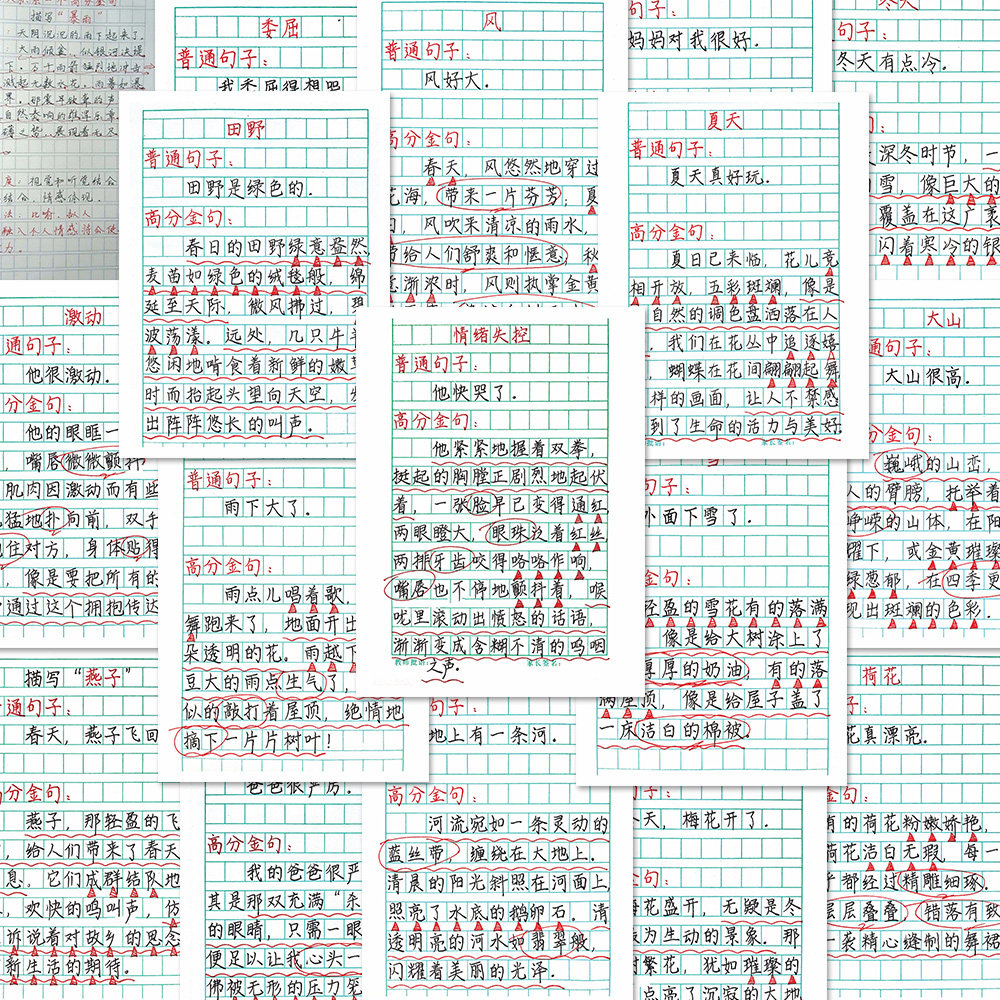 描写“暴雨”
天阴沉沉的雨下起来了.
大雨倾盆, 似银河决堤
委屈
普通句子:
我委屈得想哭
风
普通句子:
风好大.
高分金句:
春天, 风悠然地穿过
花海, 带来一片芬芳; 夏
, 风吹来清凉的雨水,
带给人们舒爽和惬意, 秋
意渐浓时, 风则执掌金黄
妈妈对我很好.
冬天
普通句子:
冬天有点冷.
深冬时节, 一
雪, 像巨大的
覆盖在这广袤
闪着寒冷的银
田野
普通句子:
田野是绿色的.
高分金句:
春日的田野绿意盎然,
麦苗如绿色的绒毯般, 绵
延至天际, 微风拂过,
波荡漾. 远处, 几只牛
悠闲地啃食着新鲜的嫩
时而抬起头望向天空,
出阵阵悠长的叫声.
夏天
普通句子:
夏天真好玩.
高分金句:
夏日已来临, 花儿竞
相开放, 五彩斑斓, 像是
自然的调色盘洒落在人
, 我们在花丛中追逐嬉
, 蝴蝶在花间翩翩起舞
样的画面, 让人不禁感
到了生命的活力与美好.
激动
通句子:
他很激动.
分金句:
他的眼眶一
, 嘴唇微微颤抖
肌肉因激动而有些
猛地扑向前, 双手
住对方, 身体贴得
, 像是要把所有的
通过这个拥抱传达
情绪失控
普通句子:
他快哭了.
高分金句:
他紧紧地握着双拳,
挺起的胸膛正剧烈地起伏
着, 一张脸早已变得通红
两眼瞪大, 眼珠泛着红丝
两排牙齿咬得咯咯作响,
嘴唇也不停地颤抖着, 喉
咙里滚动出愤怒的话语,
渐渐变成含糊不清的呜咽
之声.
教师批语:
家长签名:
大山
通句子:
大山很高.
分金句:
巍峨的山峦,
人的臂膀, 托举着
峥嵘的山体, 在阳
耀下, 或金黄璀璨
绿葱郁, 在四季更
现出斑斓的色彩.
普通句子:
雨下大了.
高分金句:
雨点儿唱着歌,
舞跑来了, 地面开出
朵透明的花. 雨越下
豆大的雨点生气了,
似的敲打着屋顶, 绝情地
摘下一片片树叶!
雪
句子:
外面下雪了.
金句:
轻盈的雪花有的落满
像是给大树涂上了
厚厚的奶油, 有的落
满屋顶, 像是给屋子盖了
一床洁白的棉被.
描写“燕子”
普通句子:
春天, 燕子飞回
高分金句:
燕子, 那轻盈的飞
, 给人们带来了春天
息. 它们成群结队地
, 欢快的鸣叫声, 仿
诉说着对故乡的思念
新生活的期待.
爸爸很严厉.
高分金句:
我的爸爸很严
其是那双充满“杀
的眼睛, 只需一眼
便足以让我心头一
佛被无形的压力笼
句子:
地上有一条河.
高分金句:
河流宛如一条灵动的
蓝丝带, 缠绕在大地上.
清晨的阳光斜照在河面上,
照亮了水底的鹅卵石. 清
透明亮的河水如翡翠般,
闪耀着美丽的光泽.
冬天, 梅花开了.
金句:
梅花盛开, 无疑是冬
为生动的景象. 那
树繁花, 犹如璀璨的
点亮了沉寂的大地
荷花
句子:
花真漂亮.
金句:
有的荷花粉嫩娇艳,
荷花洁白无瑕, 每一
都经过精雕细琢,
层层叠叠, 错落有致
一袭精心缝制的舞裙